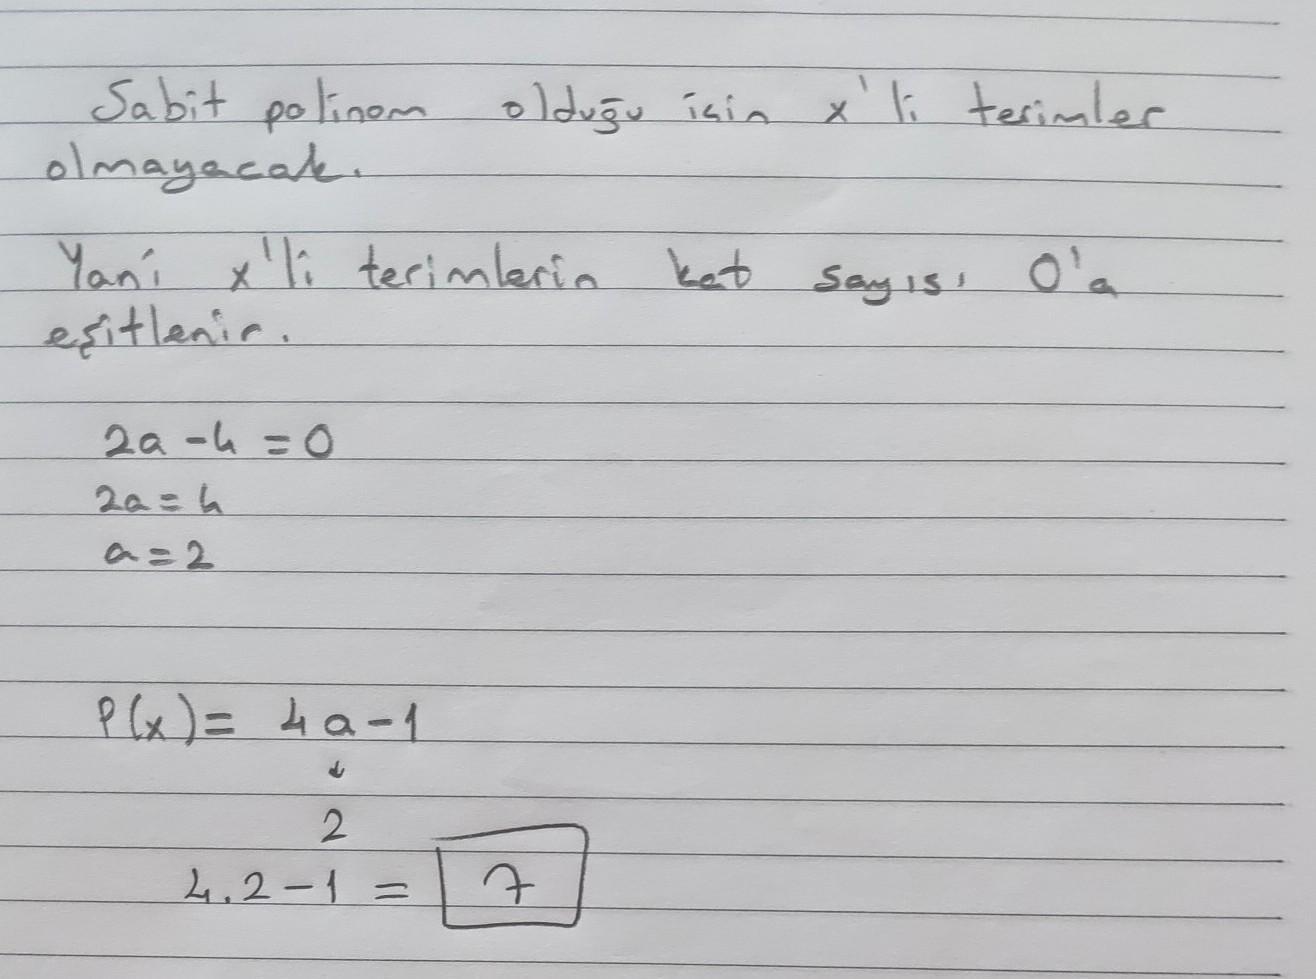 Sabit polinom olduğu için x'li terimler
olmayacak.
Yani x'li terimlerin kat sayısı 0'a
eşitlenir.
2a - 4 = 0
2a = 4
a = 2
P(x) = 4a - 1
↓
2
4.2 - 1 = 7